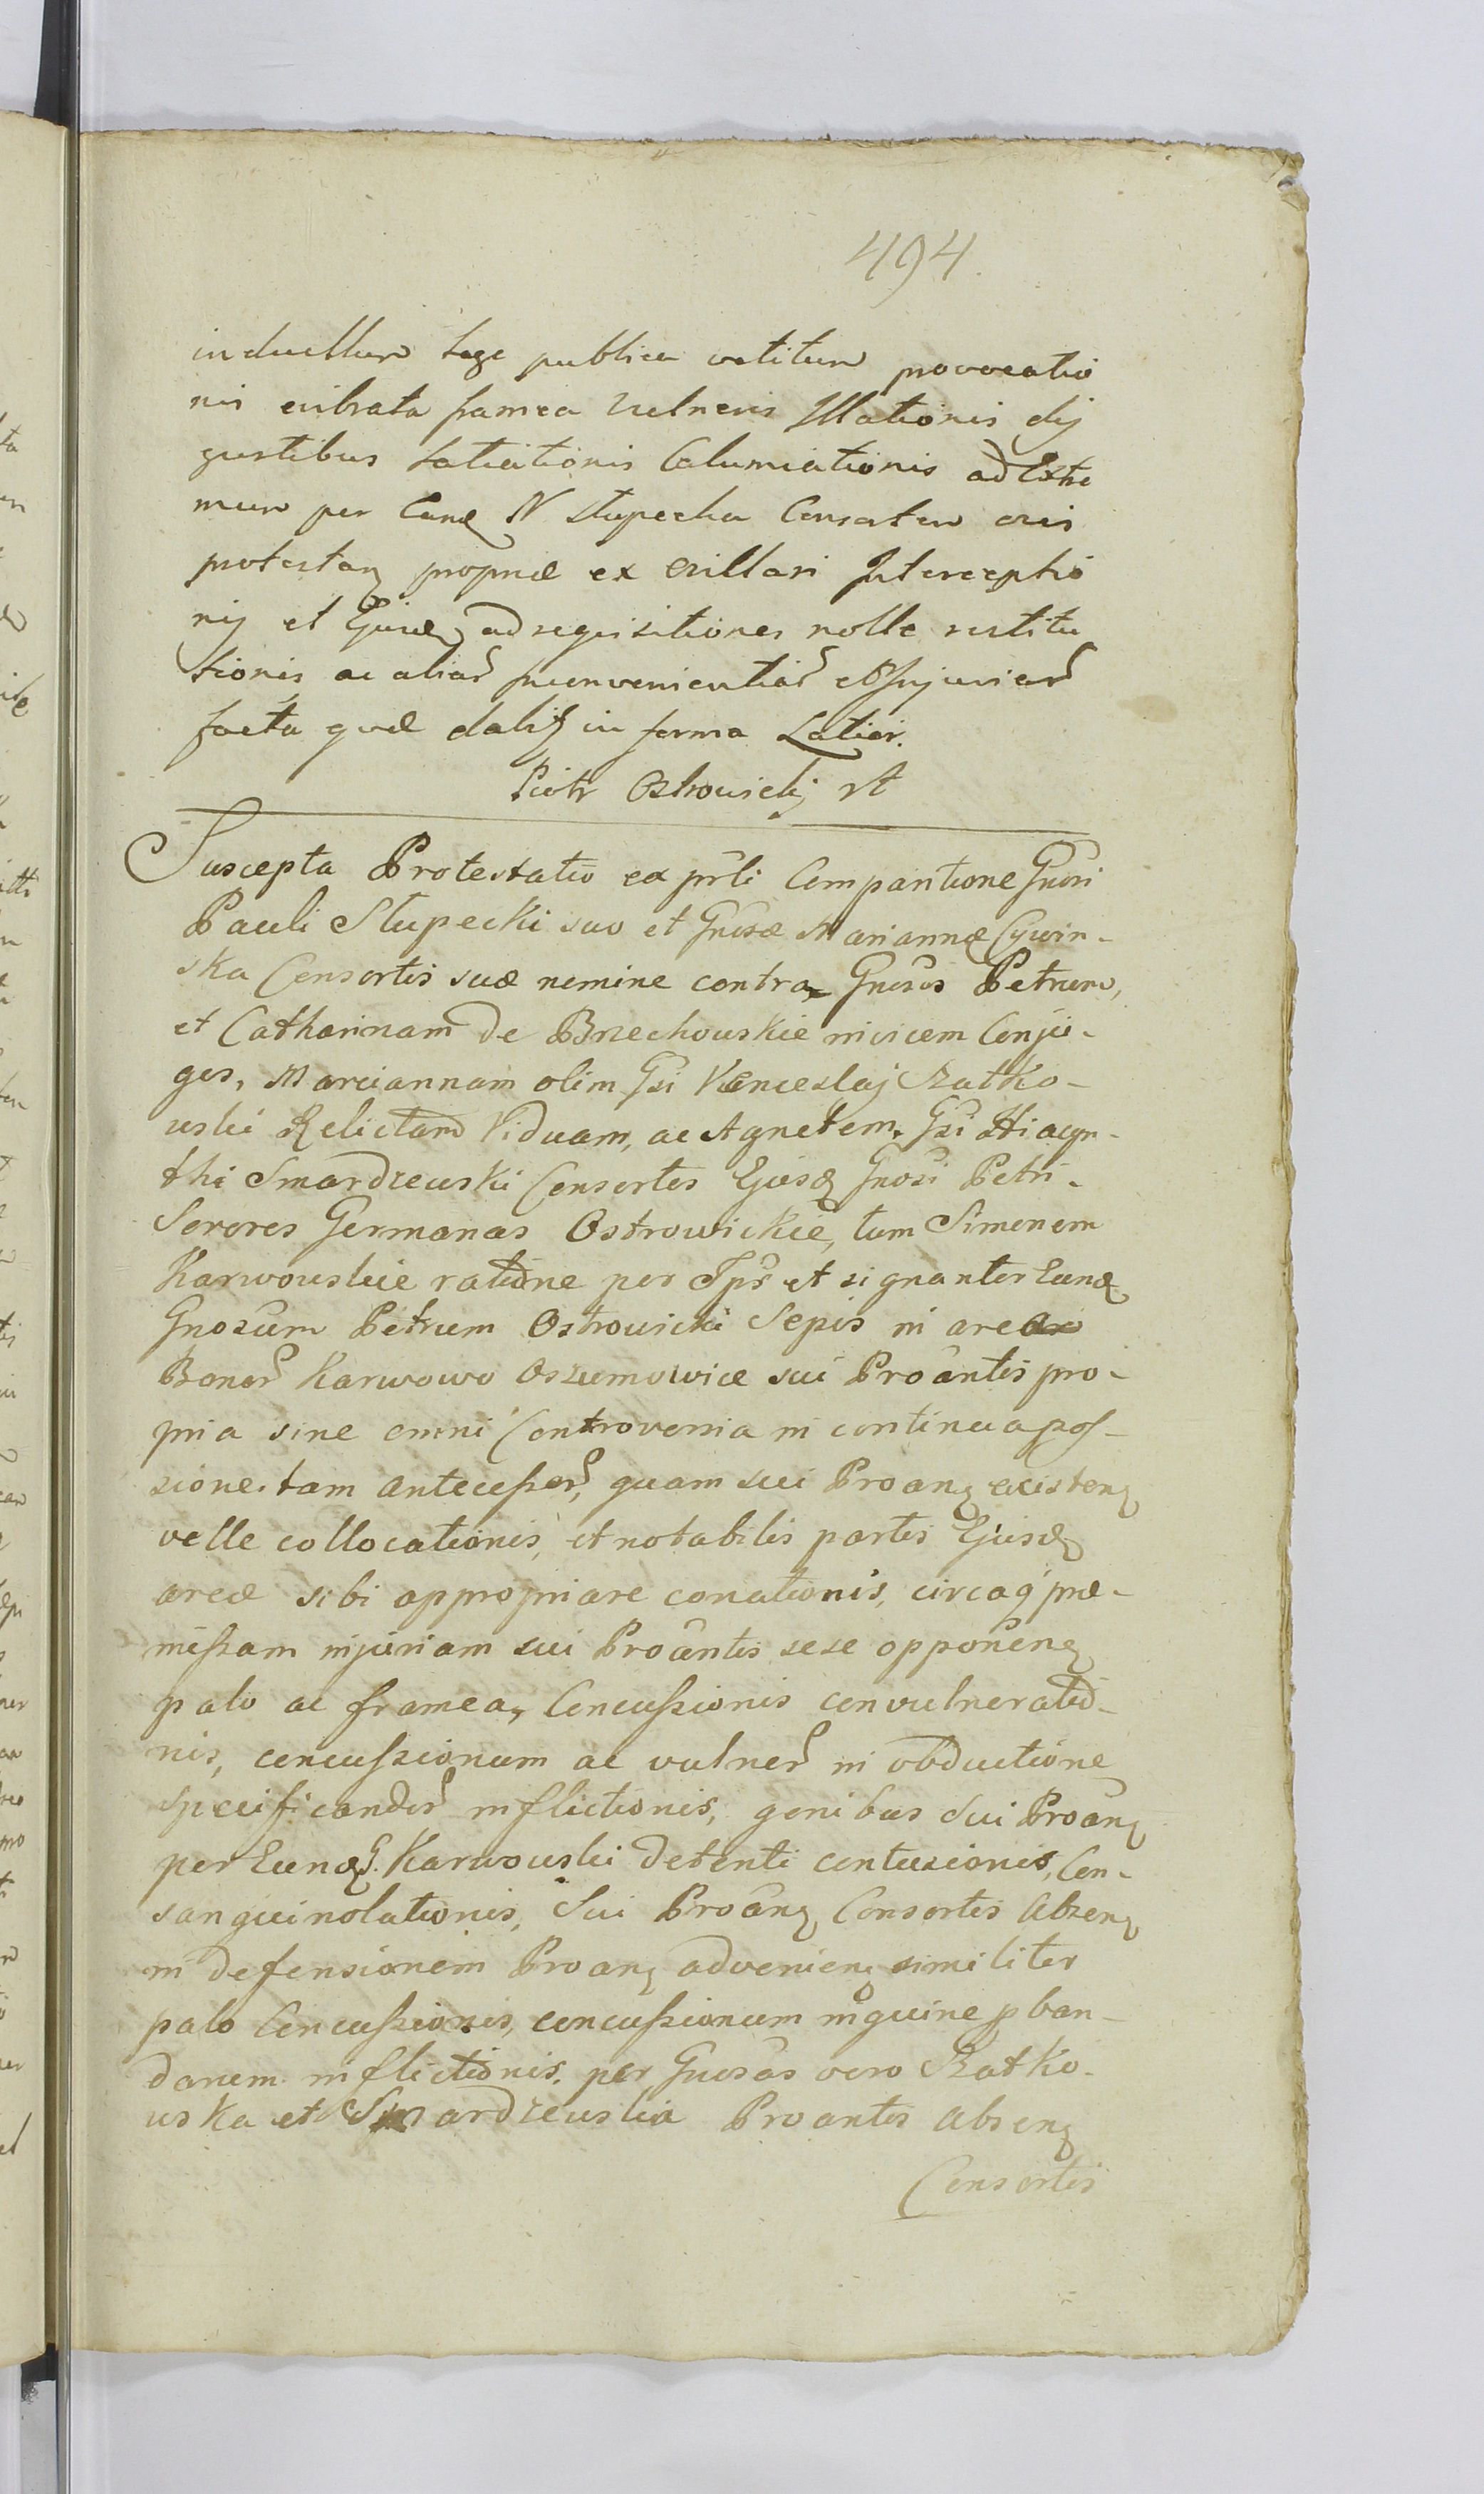 494.
in duellum lege publica vetitum provocatio
nis evibrata framea vulneris Illationis dij
gestibus Calumiationis ad Extre
mum per Eund N Słupecka Consortem
protestan propriæ ex Interceptio
nis et Ejusd ad requisitiones nolle restitu
tionis ac aliar inconvenientiar et Injuriar
facta quæ dabit in forma Latior.
Piotr Ostrowicki
Suscepta Protestatio ex prli Comparitione Gnosi
Pauli Słupecki suo et Gnosæ Mariannæ Cywin-
ska Consortis suæ nomine contra Gnosos Petrum,
et Catharinam de Brzechowskie invicem Conju-
ges, Mariannam olim Gsi Venceslaj Ratko-
wski Relictam Viduam, ac Agnetem. Gsi Hiacyn-
thi Smardzewski Consortes Ejusd Gnosi Petri.
Sorores Germanas Ostrowickie, tum Simonem
Karwowskie ratione per Ips et signanter Eund
Gnosum Petrum Ostrowicki Sepis in area
Bonor Karwowo Oszumowice sui Proantis pro-
pria sine omni Controversia in continua pos-
sione. tam antecessor, quam sui Proan existen
velle collocationis, et notabilis partis Ejusd
areæ sibi appropriare conationis, circaq præ-
missam injuriam sui Proantis sese opponen
palo ac framea, Concussionis convulneratio-
nis, concussionum ac vulner in obductione
specificandor inflictionis, genibus Sui Proan
per Eund S. Karwowski detenti contusionis, Con-
sanguinolationis, Sui Proan Consortis Absen
in defensionem Proan advenien similiter
palo Concussionis, concussionum inguine pban-
danem inflictionis. per Gnosas vero Ratko-
wska et Smardzewska Proantis absen
Consortis